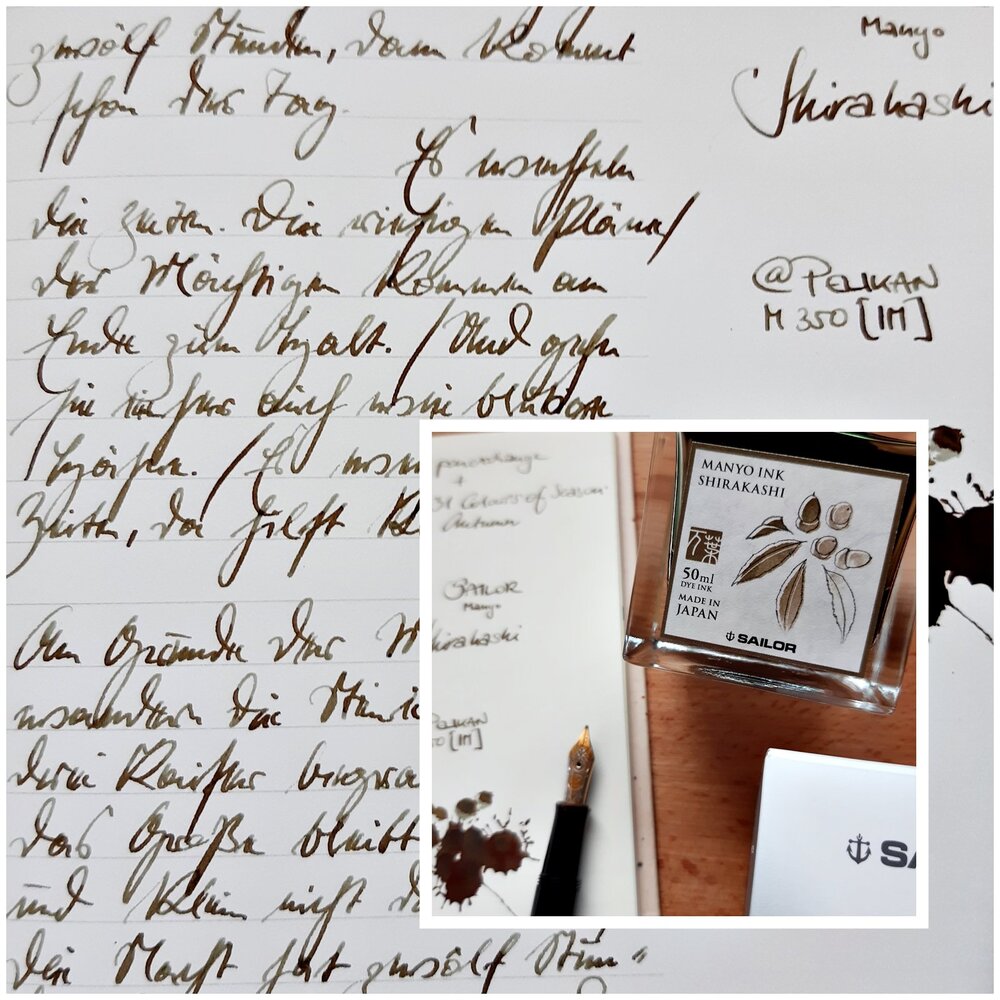 zwölf Stunden, dann kommt
schon der Tag.
Es wechseln
die Zeiten. Die riesigen Pläne/
der Mächtigen kommen am
Ende zum Halt. / Und gehn
sie einher auch wie blutige
Hähne. / Es we
Zeiten, da hilft k
Am Grunde der M
wandern die Stei
drei Kaiser begra
das Große bleibt
und klein nicht d
die Nacht hat zwölf Stun"
Manyo
Shirakashi
@PELIKAN
M 350 [IM]
penexchange
+
31 Colours of Season
Autumn
SAILOR
Manyo
hirakashi
PELIKAN
50 [IM]
MANYO INK
SHIRAKASHI
万葉
50ml
DYE INK
MADE IN
JAPAN
SAILOR
SA